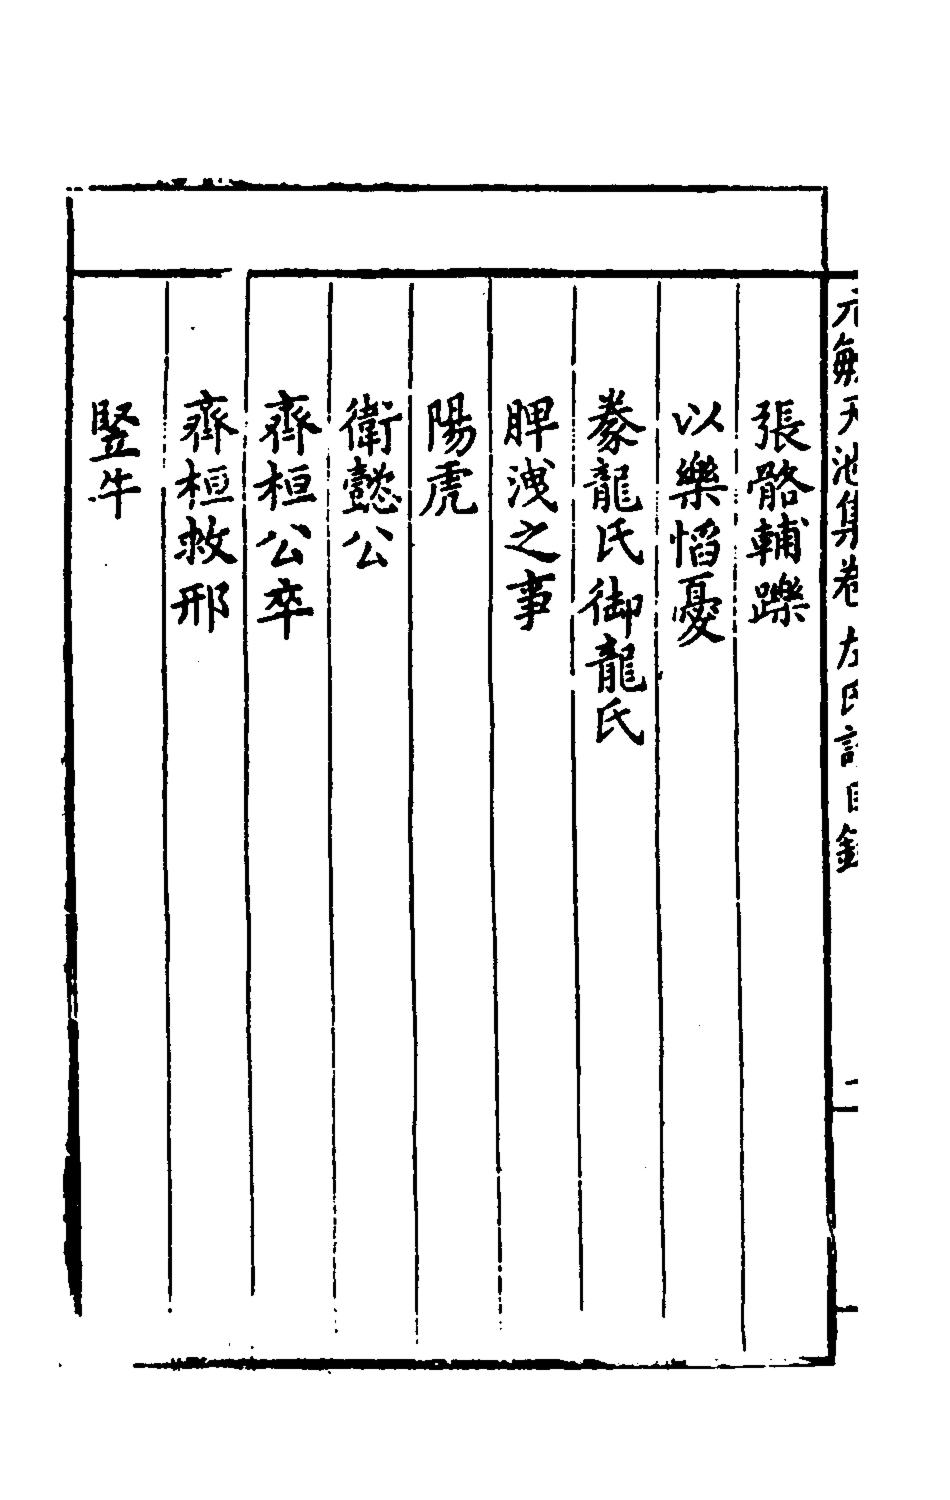 元敏天池集卷 左氏討目錄 一
張骼輔躒
以樂慆憂
豢龍氏御龍氏
脾洩之事
陽虎
衛懿公
齊桓公卒
齊桓救邢
豎牛